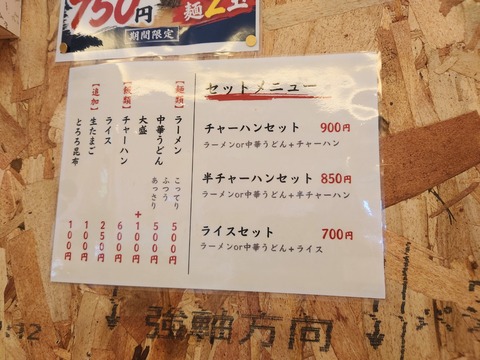 750円
麺2玉
期間限定
セットメニュー
チャーハンセット 900円
ラーメンor中華うどん+チャーハン
半チャーハンセット 850円
ラーメンor中華うどん+半チャーハン
ライスセット 700円
ラーメンor中華うどん+ライス
【麺類】
ラーメン こってり ふつう あっさり 500円
中華うどん 500円
大盛 +100円
【飯類】
チャーハン 600円
ライス 250円
【追加】
生たまご 100円
とろろ昆布 100円
強軸方向